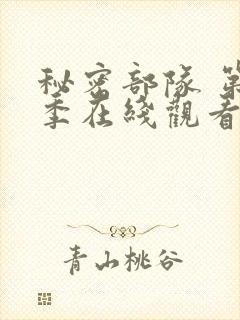 秘密部隊 第
季在綫觀看
青山桃谷